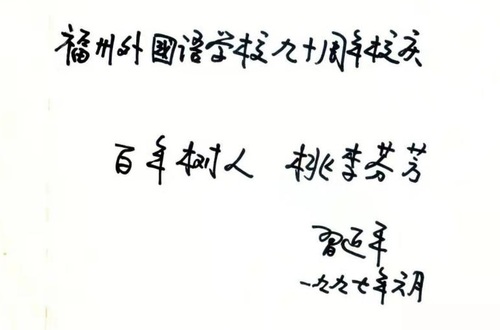 福州外國语学校九十周年校庆
百年树人 桃李芬芳
習近平
一九九七年六月